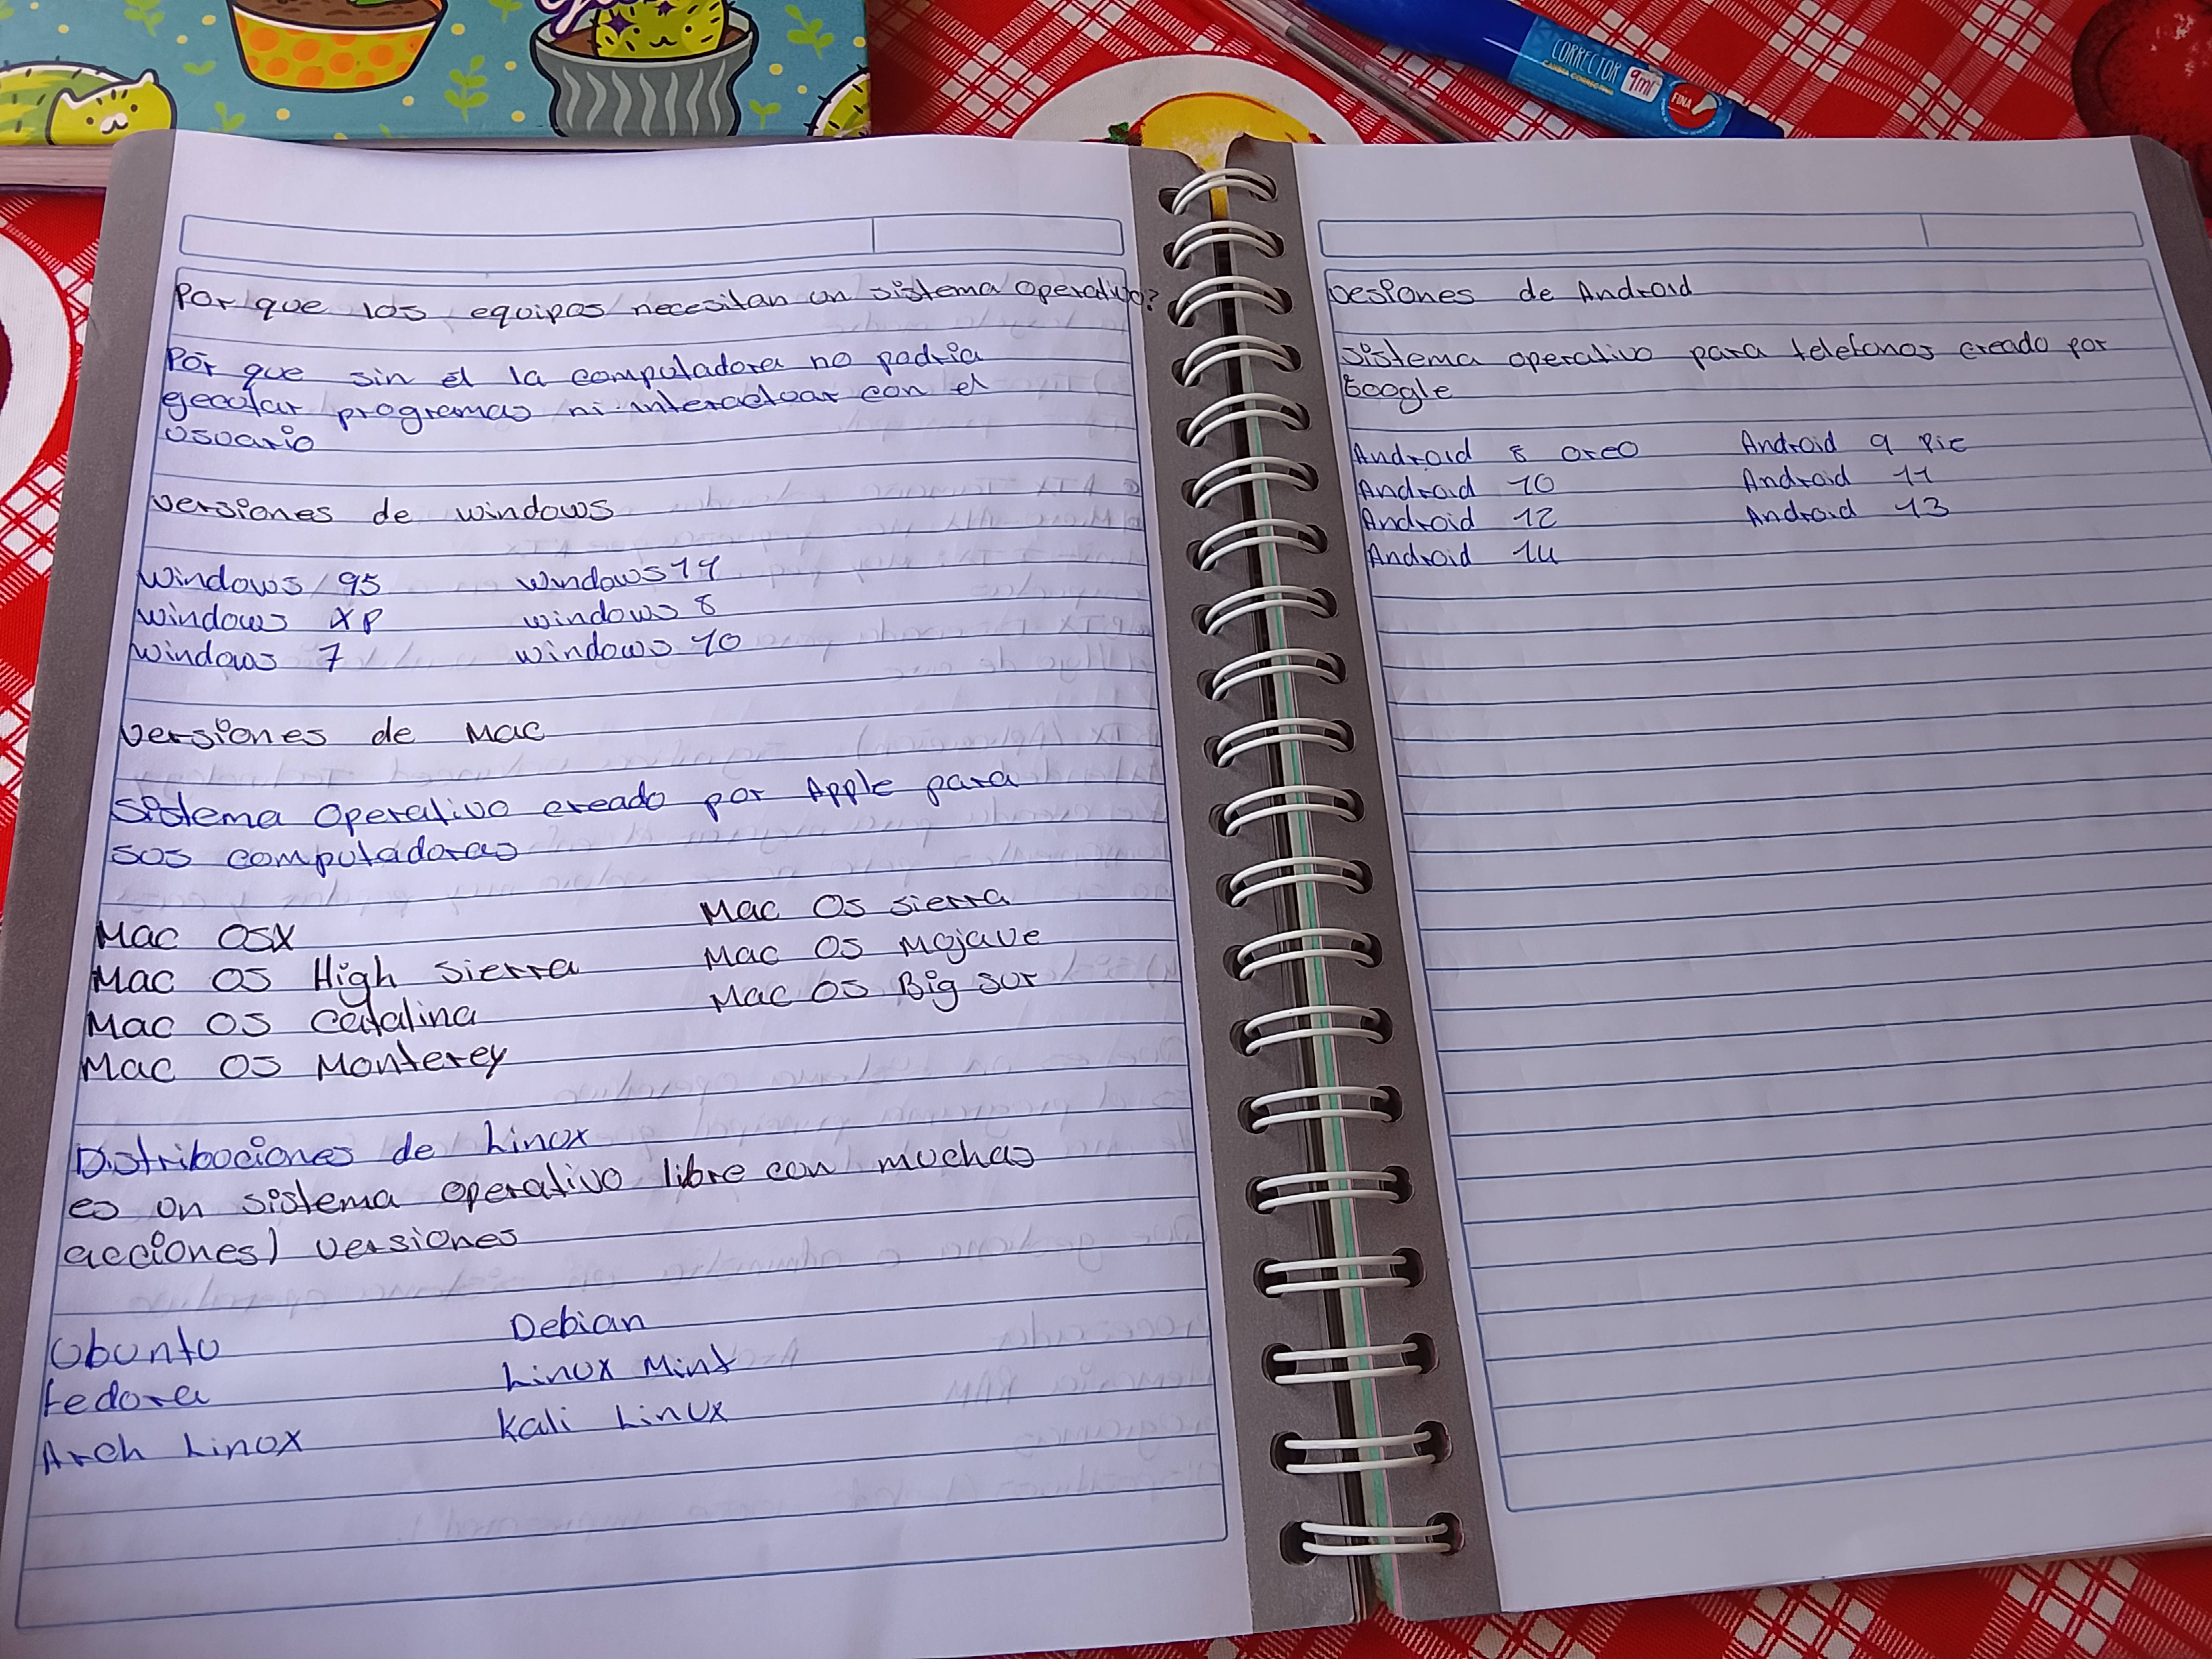 CORRECTOR
9ml
FUNA
Por que los equipos necesitan un sistema operativo?
Por que sin el la computadora no podria
ejecutar programas ni interactuar con el
usuario
versiones de windows
Windows 95 windows 11
windows XP windows 8
windows 7 windows 10
versiones de Mac
Sistema Operativo creado por Apple para
sus computadoras
Mac OSX Mac Os sierra
Mac OS High sierra Mac OS Mojave
Mac OS Catalina Mac OS Big Sur
Mac OS Monterey
Distribuciones de Linux
es un sistema operativo libre con muchas
acciones) versiones
Ubuntu Debian
Fedora Linux Mint
Arch Linux Kali Linux
vesiones de Android
sistema operativo para telefonos creado por
Google
Android 8 oreo Android 9 Pie
Android 10 Android 11
Android 12 Android 13
Android 14